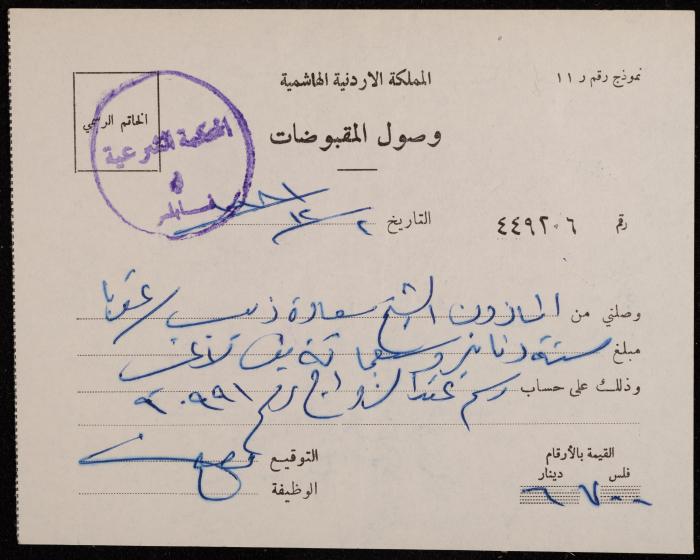 نموذج رقم ر ١١
المملكة الاردنية الهاشمية
الخاتم الرسمي
وصول المقبوضات
المحكمة الشرعية
في
نابلس
رقم ٤٤٩٢٠٦
التاريخ ٢/١٢/
وصلني من المأذون الشيخ سعادة ذيب / عقربا
مبلغ ستة دنانير وسبعماية فلس
وذلك على حساب رسم عقد الزواج رقم
القيمة بالأرقام
فلس دينار
٧٠٠ ٦
التوقيع
الوظيفة